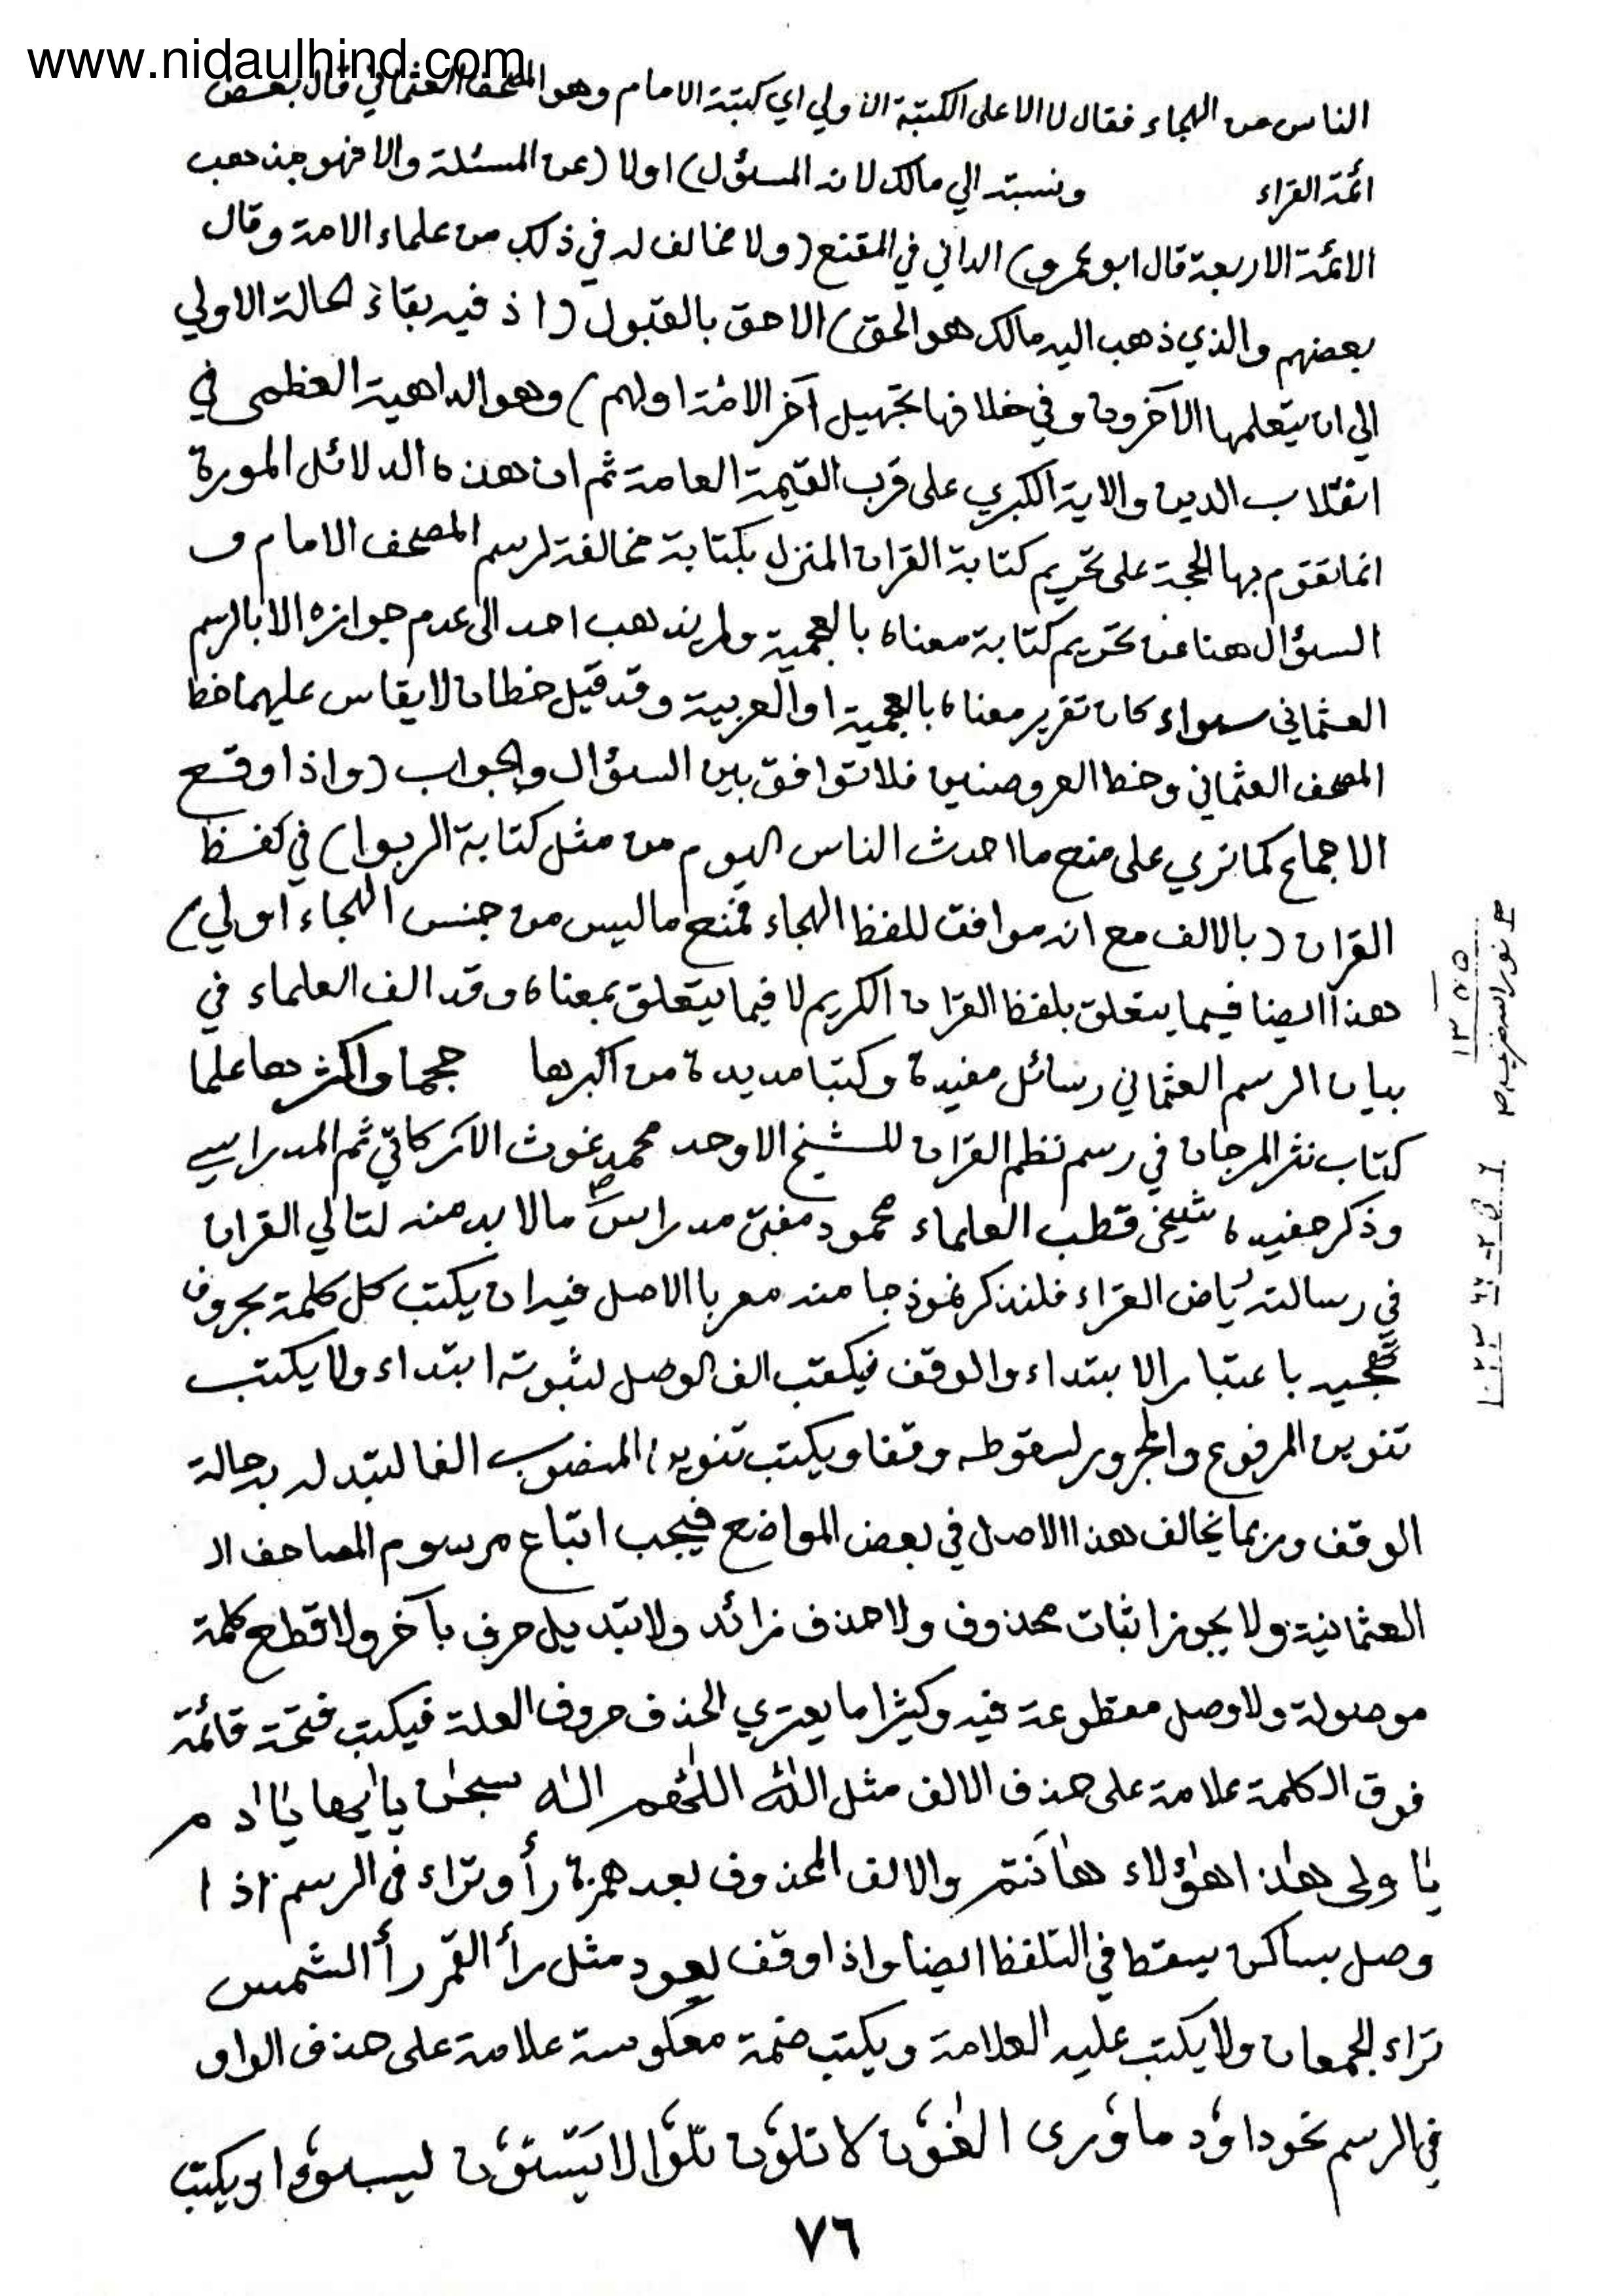 www.nidaulhind.com
الناس من الهجاء فقال لا الا على الكتبة الاولي اي كتبة الامام وهو المصحف العثماني قال بعض
ائمة القراء ونسبته الي مالك لانه المسئول) اولا (عن المسئلة والا فهو مذهب
الائمة الاربعة قال ابو عمرو) الداني في المقنع (ولا مخالف له في ذلك من علماء الامة وقال
بعضهم والذي ذهب اليه مالك هو الحق) الاحق بالقبول (اذ فيه بقاء الحالة الاولي
الي ان يتعلمها الآخرون وفي خلافها تجهيل آخر الامة اولهم) وهو الداهية العظمى في
انقلاب الدين والاية الكبري على قرب القيمة العامة ثم ان هذه الدلائل المورة
انما تقوم بها الحجة على تحريم كتابة القران المنزل بكتابة مخالفة لرسم المصحف الامام و
السؤال هنا عن تحريم كتابة معناه بالعجمية ولم يذهب احد الى عدم جوازه الا بالرسم
العثماني سواء كان تقرير معناه بالعجمية او العربية وقد قيل خطان لا يقاس عليهما خط
المصحف العثماني وخط العروضيين فلا توافق بين السؤال والجواب (واذا وقع
الاجماع كما تري على منع ما احدث الناس اليوم من مثل كتابة الربوا) في لفظ
القران (بالالف مع انه موافق للفظ الهجاء فمنع ما ليس من جنس الهجاء اولي)
هذا ايضا فيما يتعلق بلفظ القران الكريم لا فيما يتعلق بمعناه وقد الف العلماء في
بيان الرسم العثماني رسائل مفيدة وكتبا مديدة من اكبرها حجما واكثرها علما
كتاب نثر المرجان في رسم نظم القران للشيخ الاوحد محمد غوث الاركاتي ثم المدراسي
وذكر حفيده شيخي قطب العلماء محمود مفتي مدراس ما لا بد منه لتالي القران
في رسالته رياض القراء فلنذكر نموذجا منه معربا الاصل فيه ان يكتب كل كلمة بحروف
تهجيه باعتبار الابتداء والوقف فيكتب الف الوصل لثبوته ابتداء ولا يكتب
تنوين المرفوع والمجرور لسقوطه وقفا ويكتب تنوين المنصوب الفا لتبدله به حالة
الوقف وربما يخالف هذا الاصل في بعض المواضع فيجب اتباع مرسوم المصاحف ال
العثمانية ولا يجوز اثبات محذوف ولا حذف زائد ولا تبديل حرف بآخر ولا قطع كلمة
موصولة ولا وصل مقطوعة فيه وكثيرا ما يعتري الحذف حروف العلة فيكتب فتحة قائمة
فوق الكلمة علامة على حذف الالف مثل اللّٰه اللّٰهم الٰه سبحٰن يايها يٰاادم
يٰاولى هٰذا هٰؤلاء هٰانتم والالف المحذوف بعد همزة رأ وتراء في الرسم اذا
وصل بساكن يسقط في التلفظ ايضا واذا وقف يعود مثل رأ القمر رأ الشمس
تراء الجمعان ولا يكتب عليه العلامة ويكتب ضمة معكوسة علامة على حذف الواو
في الرسم نحو داود ماوري الغاون لا تلون تلوا لا يستون ليسوا ويكتب
٧٦
١٣٥٥